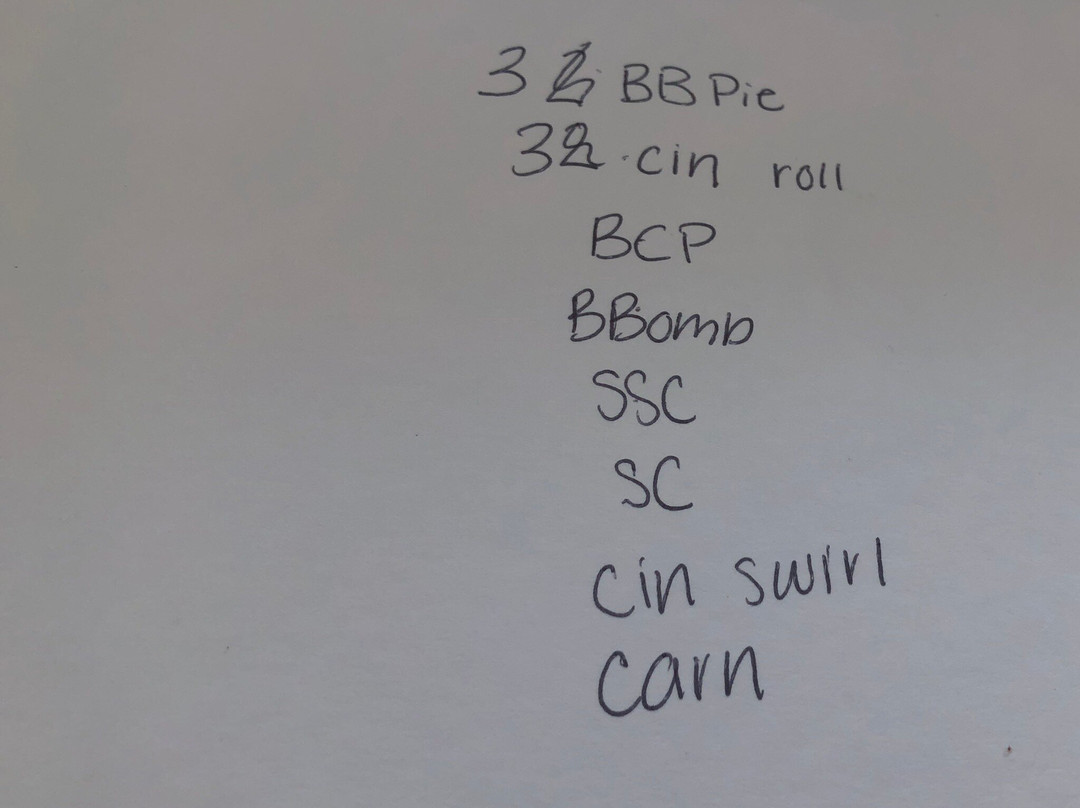 3 BB Pie
3 cin roll
BCP
BBomb
SSC
SC
cin swirl
carn